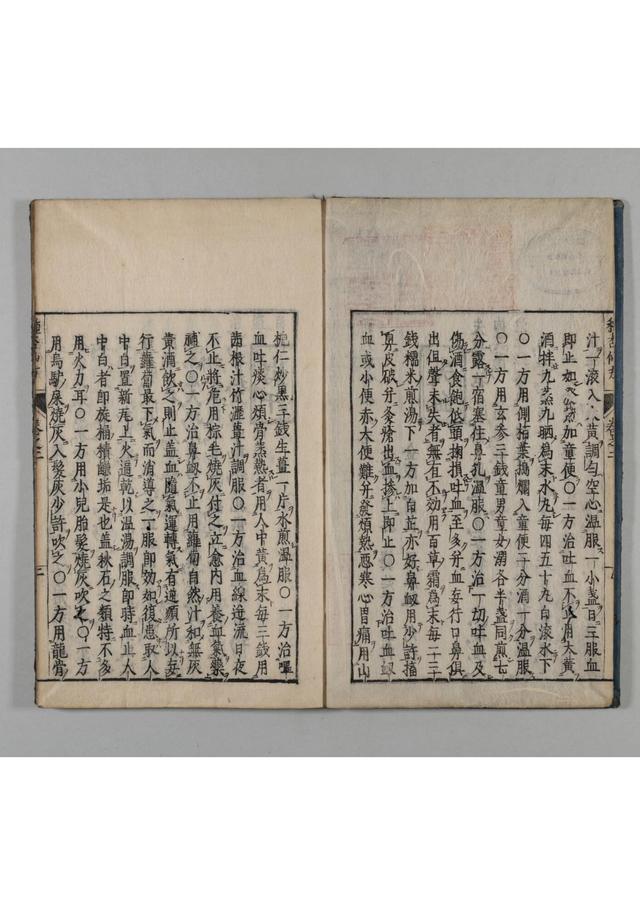 汁一滾入人黃調勻空心溫服一小盞日三服血
即止如冬然加童便〇一方治吐血不止用大黃
酒拌九蒸九晒為末水丸每四五十丸白滾水下
〇一方用側柏葉搗爛入童便二分酒一分溫服
〇一方用玄參三錢童男童女溺各半盞同煎七
分露一宿塞住鼻孔溫服〇一方治一切吐血及
傷酒食飽低頭掬損吐血至多并血妄行口鼻俱
出但聲未失者無有不効用百草霜為末每二三
錢糯米煎湯下一方加白芷亦好鼻衂用少許搐
鼻皮破并灸瘡出血摻上即止〇一方治吐血衂
血或小便赤大便難并發煩熱惡寒心胃痛用山
梔仁炒黑三錢生薑一片水煎溫服〇一方治嘔
血吐痰心煩骨蒸熱者用人中黃為末每三錢用
茜根汁竹瀝薑汁調服〇一方治血線迸流日夜
不止將危用棕毛燒灰付之立愈內用養血氣藥
補之〇一方治鼻衂不止用蘿蔔自然汁和無灰
黃酒飲之則止蓋血隨氣運轉氣有逆願所以妄
行蘿蔔最下氣而消導之一服即効如復患取人
中白置新瓦上火逼乾以溫湯調服即時血止人
中白者即旋桶積鹼垢是也蓋秋石之類特不多
用火力耳〇一方用小兒胎髮燒灰吹之〇一方
用烏驢屎燒灰入髮灰少許吹之〇一方用龍骨
卷之二